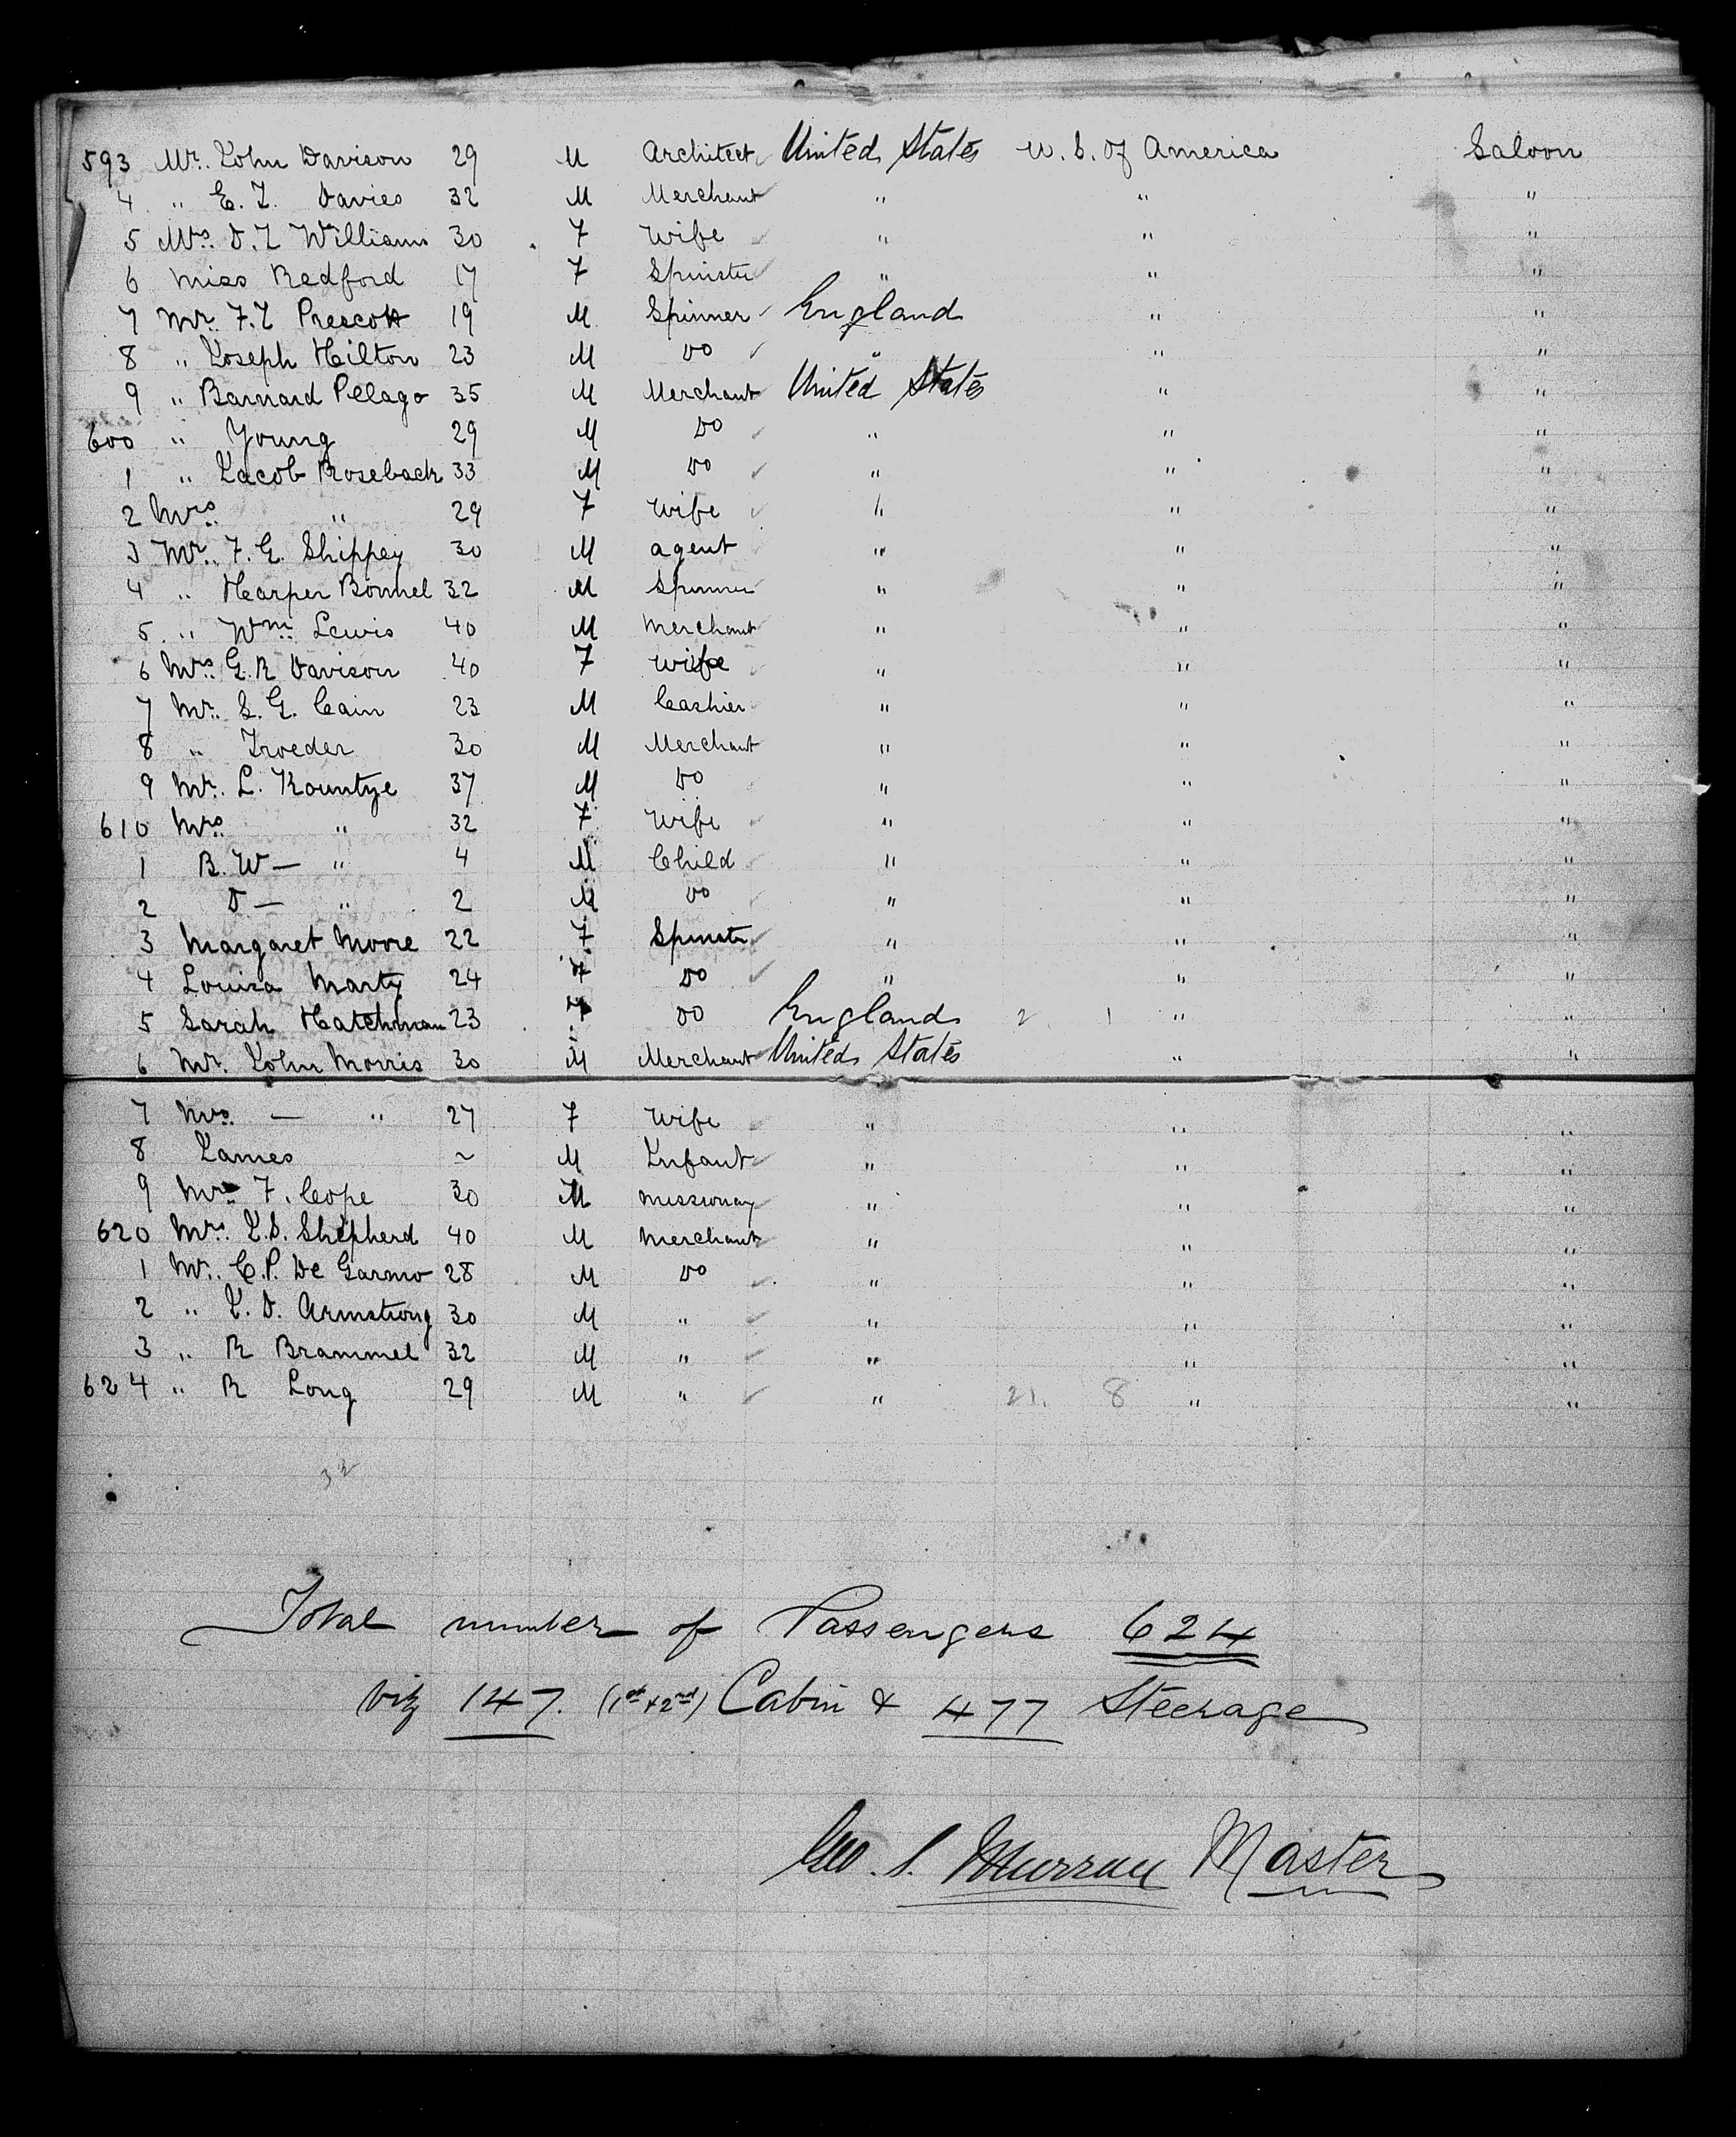 593 Mr. John Davison 29 M Architect United States U. S. of America Saloon
4 " E. J. Davies 32 M Merchant " " "
5 Mrs. D. J. Williams 30 F Wife " " "
6 Miss Redford 17 F Spinster " " "
7 Mr. F. J. Prescott 19 M Spinner England " "
8 " Joseph Hilton 23 M Do " " "
9 " Barnard Pelago 35 M Merchant United States " "
600 " Young 29 M Do " " "
1 " Jacob Rosebach 33 M Do " " "
2 Mrs. " 29 F Wife " " "
3 Mr. F. E. Shippey 30 M agent " " "
4 " Harper Bonnel 32 M Spinner " " "
5 " Wm. Lewis 40 M Merchant " " "
6 Mrs. G. R. Davison 40 F Wife " " "
7 Mr. S. G. Cain 23 M Cashier " " "
8 " Troeder 30 M Merchant " " "
9 Mr. L. Kountze 37 M Do " " "
610 Mrs. " 32 F Wife " " "
1 B. W — " 4 M Child " " "
2 D — " 2 M Do " " "
3 Margaret Moore 22 F Spinster " " "
4 Louisa Marty 24 F Do " " "
5 Sarah Hatchman 23 F Do England 2 1 " "
6 Mr. John Morris 30 M Merchant United States " "
7 Mrs. — " 27 F Wife " " "
8 James ~ M Infant " " "
9 F. Cope 30 M Missionary " " "
620 Mr. J. S. Shepherd 40 M Merchant " " "
1 Mr. C. P. De Garmo 28 M Do " " "
2 " J. D. Armstrong 30 M " " " "
3 " R Brammel 32 M " " " "
624 " R Long 29 M " " 21. 8 " "
32
Total number of Passengers 624
viz 147. (1st & 2nd) Cabin & 477 Steerage
Geo. S. Murray Master